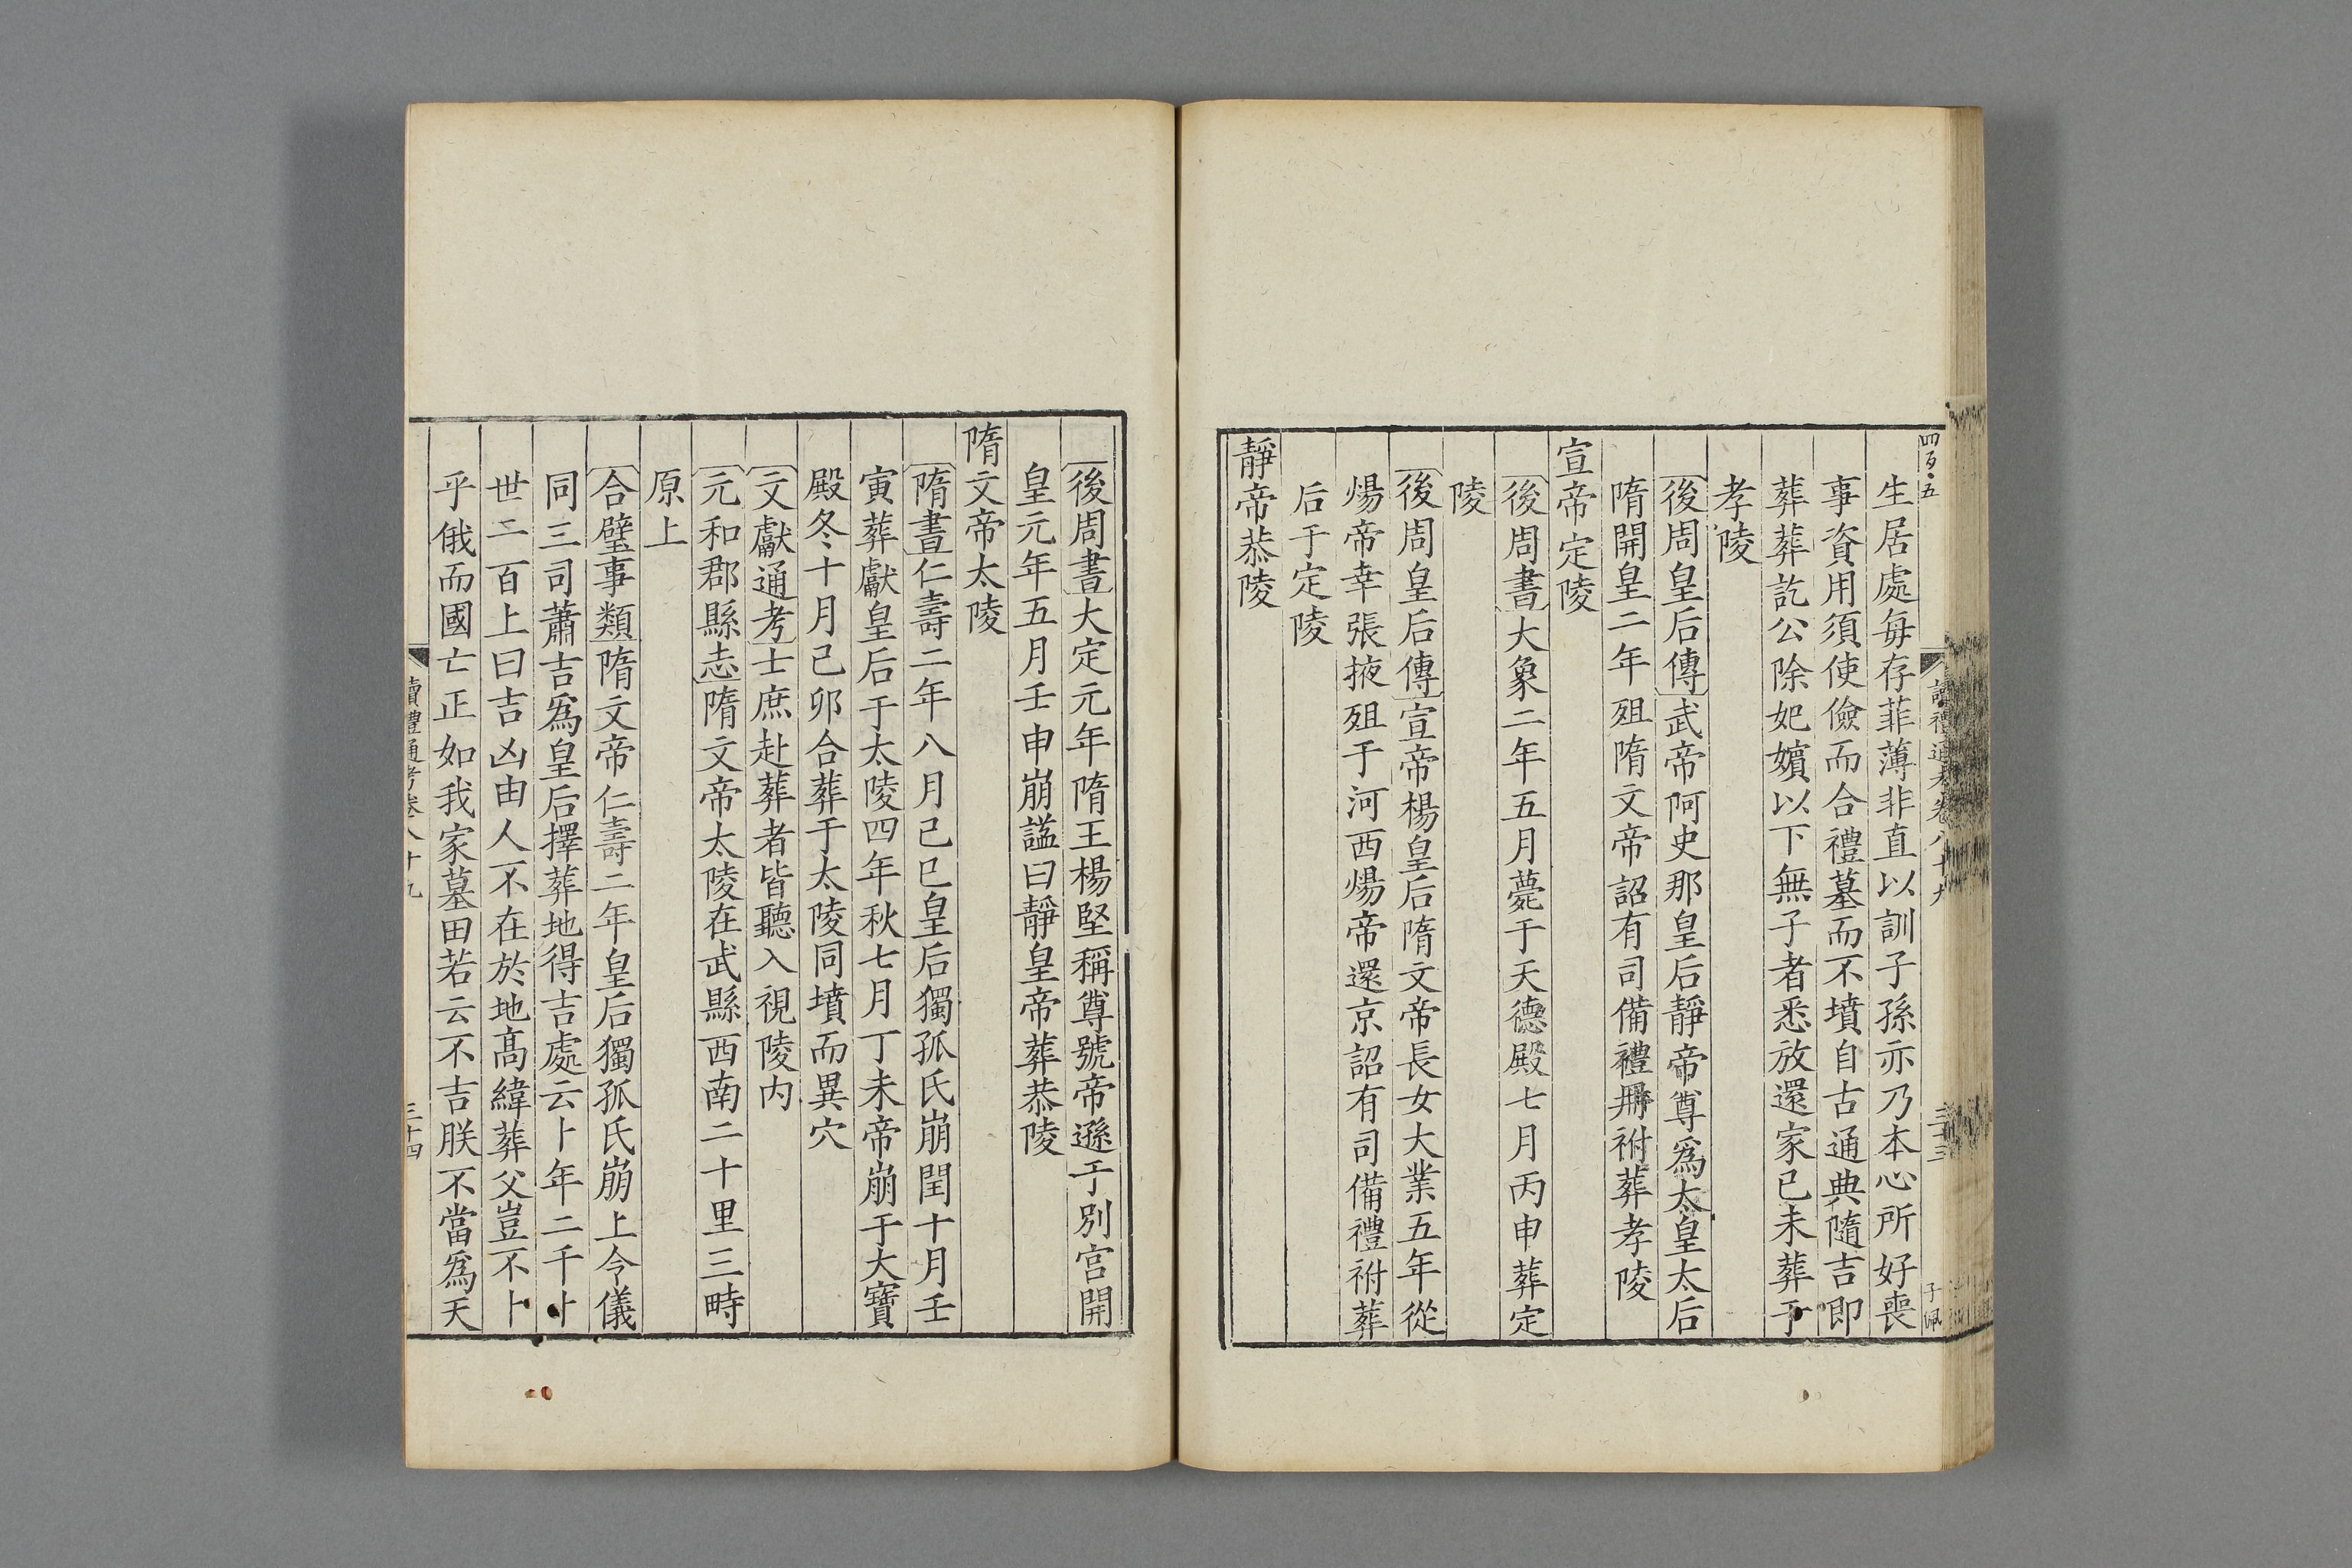 四百〇五
讀禮通考卷八十九
三十三
子佩
生居處每存菲薄非直以訓子孫亦乃本心所好喪
事資用須使儉而合禮墓而不墳自古通典隨吉即
葬葬訖公除妃嬪以下無子者悉放還家已未葬于
孝陵
後周皇后傳武帝阿史那皇后靜帝尊爲太皇太后
隋開皇二年殂隋文帝詔有司備禮冊祔葬孝陵
宣帝定陵
後周書大象二年五月薨于天德殿七月丙申葬定
陵
後周皇后傳宣帝楊皇后隋文帝長女大業五年從
煬帝幸張掖殂于河西煬帝還京詔有司備禮祔葬
后于定陵
靜帝恭陵
後周書大定元年隋王楊堅稱尊號帝遜于別宮開
皇元年五月壬申崩謚曰靜皇帝葬恭陵
隋文帝太陵
隋書仁壽二年八月己巳皇后獨孤氏崩閏十月壬
寅葬獻皇后于太陵四年秋七月丁未帝崩于大寶
殿冬十月己卯合葬于太陵同墳而異穴
文獻通考士庶赴葬者皆聽入視陵内
元和郡縣志隋文帝太陵在武縣西南二十里三畤
原上
合璧事類隋文帝仁壽二年皇后獨孤氏崩上令儀
同三司蕭吉爲皇后擇葬地得吉處云卜年二千卜
世二百上曰吉凶由人不在於地高緯葬父豈不卜
乎俄而國亡正如我家墓田若云不吉朕不當爲天
讀禮通考卷八十九
三十四